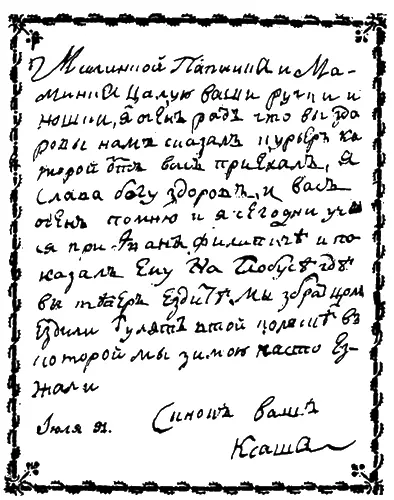 Милинкой Папинка и Ма-
минка цалую ваши ручки и
ношки, я очень радъ что вы здо
ровы намъ сказалъ курьеръ ка
торой отъ васъ приехалъ, я
слава богу здоровъ и васъ
очень помню и я сегодни учи
ся при Иванъ филипичѣ и по
казалъ ему на глобусѣ гдѣ
вы теперь ездитѣ мы збратцом
ездили гулять втой коляскѣ въ
которой мы зимою часто Ез-
жали
Июля
Синокъ вашъ
Ксаша